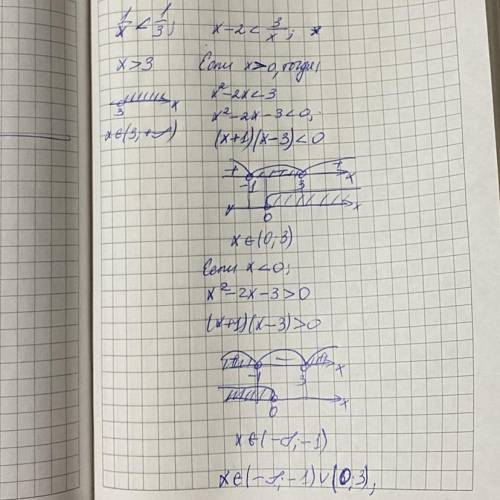 1/x < 1/3;
x > 3
3 x
x∈(3; +∞)
x-2 < 3/x;
Если x>0, тогда:
x²-2x<3
x²-2x-3<0;
(x+1)(x-3)<0
+ - +
-1 3 x
0 x
x∈(0;3)
Если x<0;
x²-2x-3>0
(x+1)(x-3)>0
+ - +
-1 3 x
0 x
x∈(-∞;-1)
x∈(-∞;-1)∪(0;3),